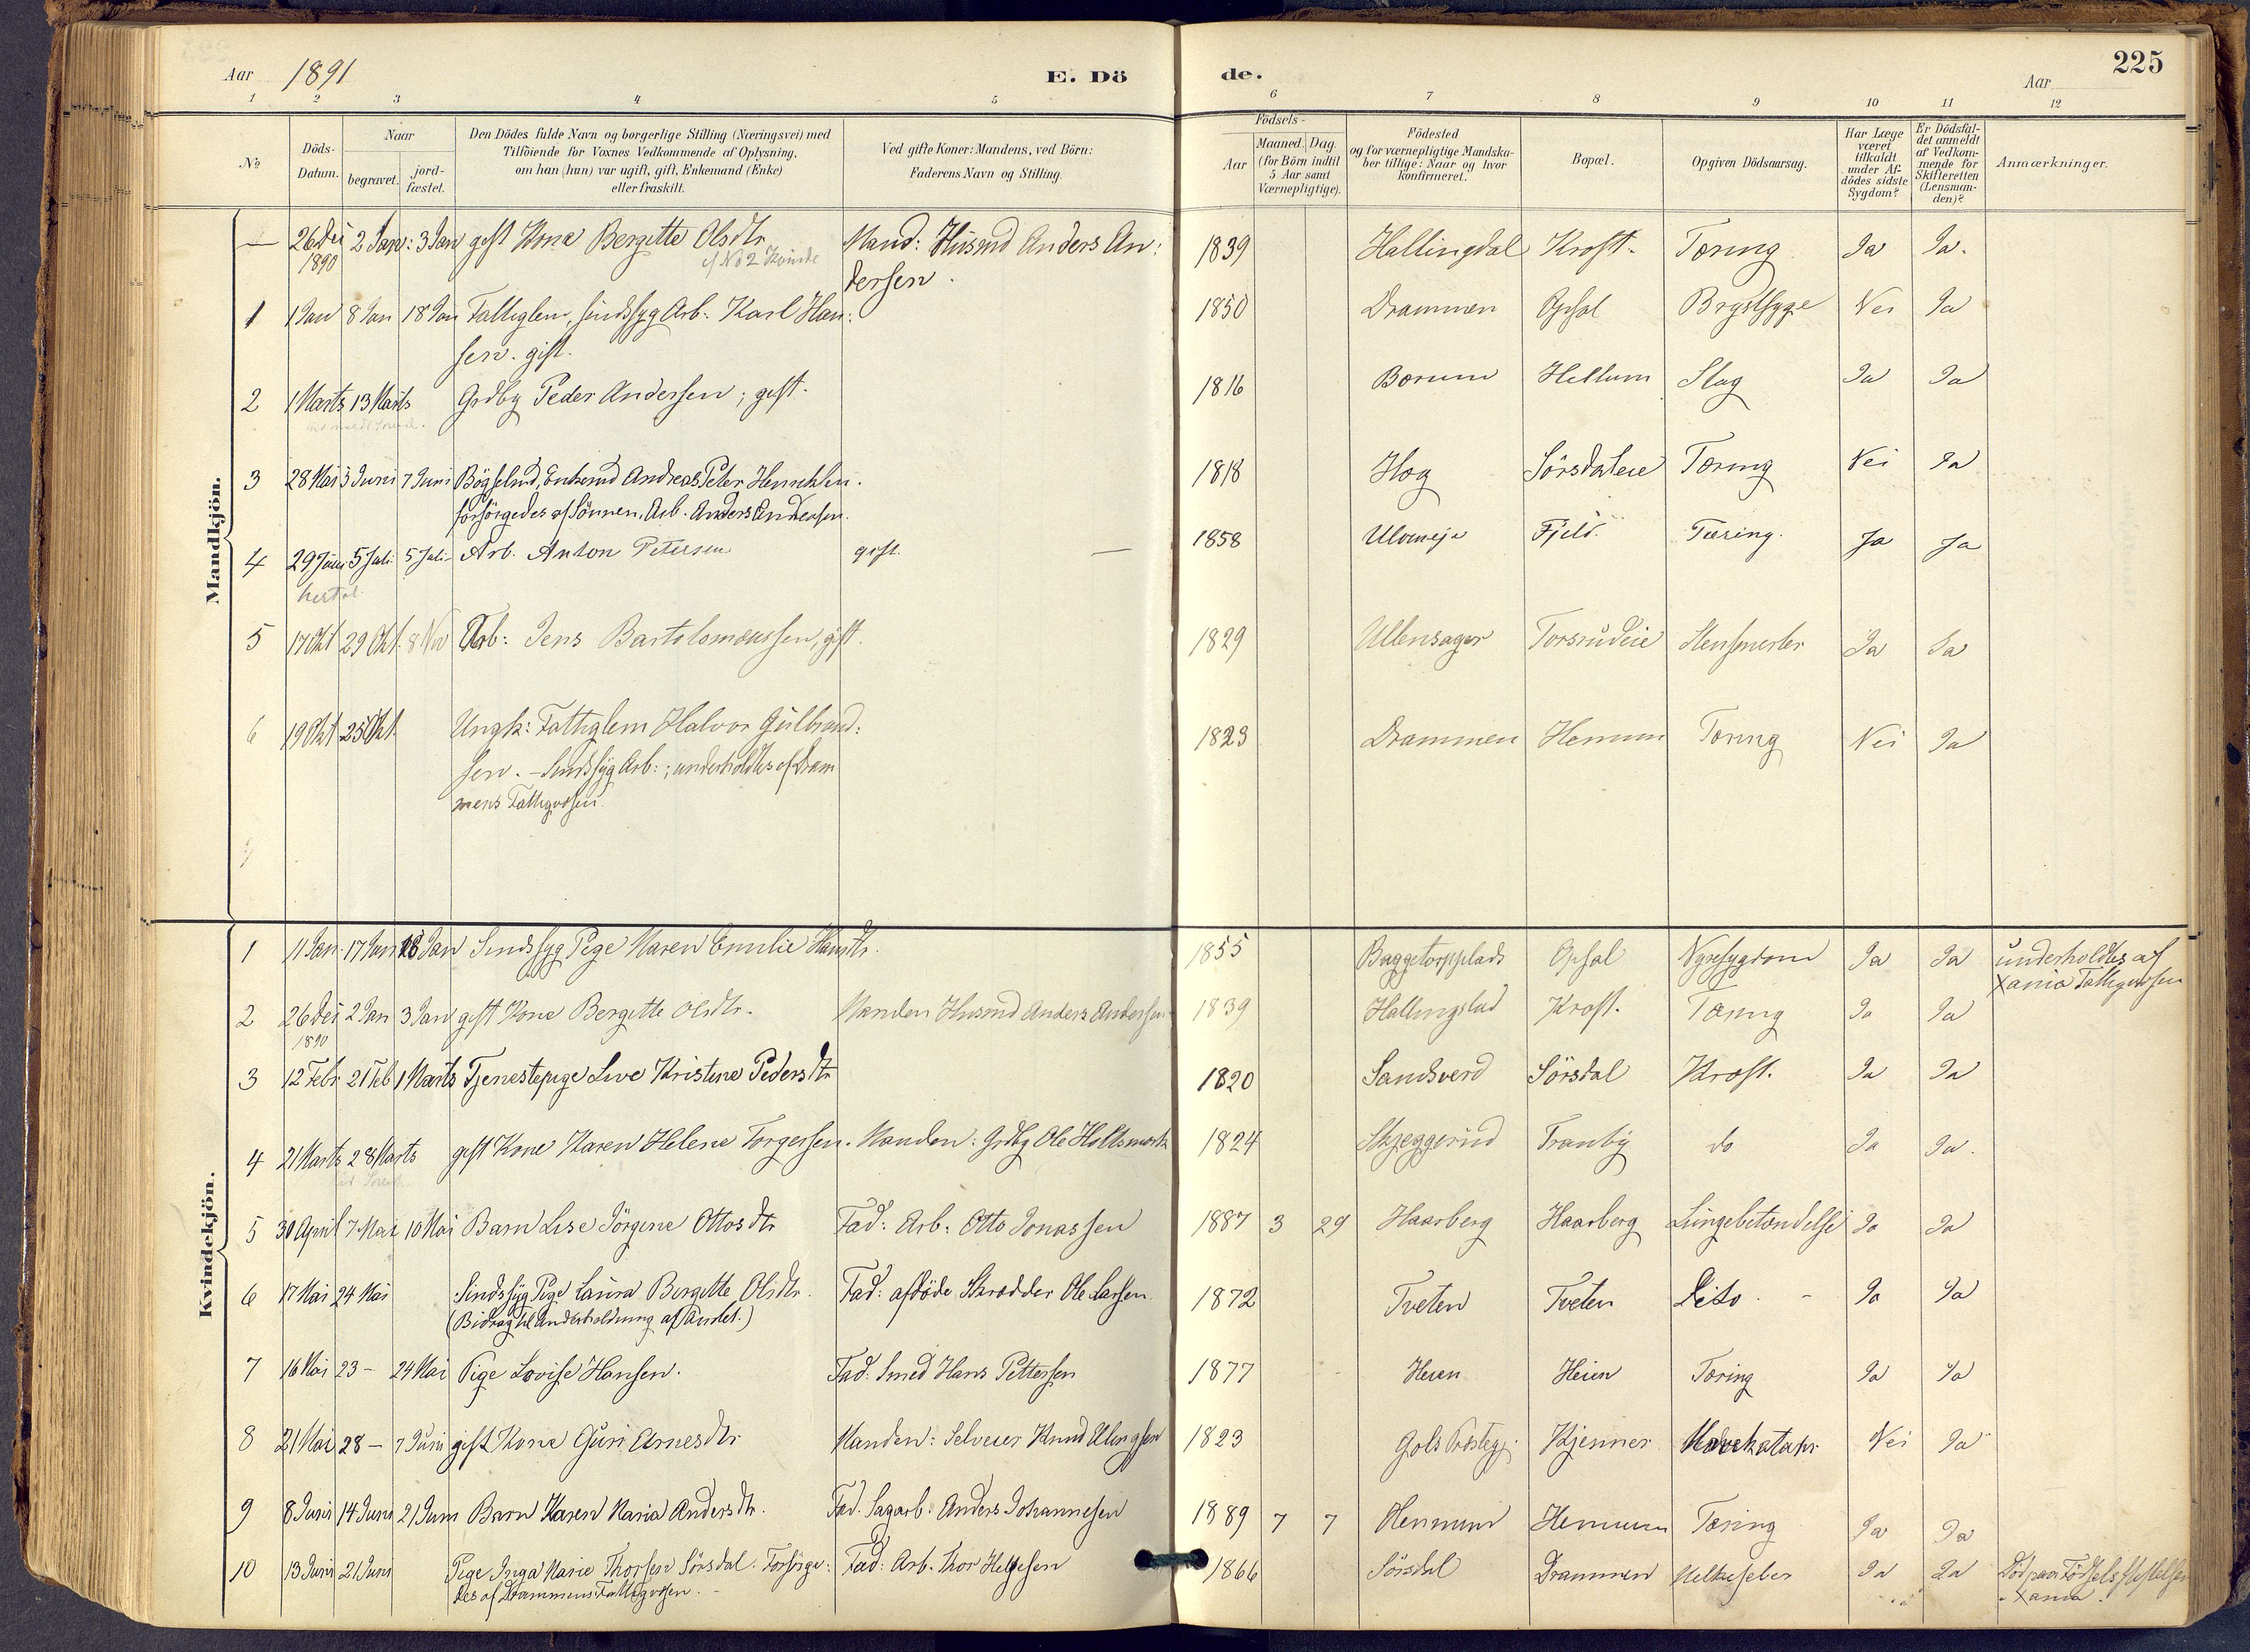 Aar 1891 E. Dö de. Aar 225
1 2 3 4 5 6 7 8 9 10 11 12
No
Döds-Datum.
Naar
begravet.
jord-fæstet.
Den Dödes fulde Navn og borgerlige Stilling (Næringsvei) med
Tilföiende for Voxnes Vedkommende af Oplysning,
om han (hun) var ugift, gift, Enkemand (Enke)
eller fraskilt.
Ved gifte Koner: Mandens, ved Börn:
Faderens Navn og Stilling.
Födsels-
Aar
Maaned. Dag.
(for Börn indtil
5 Aar samt
Værnepligtige).
Födested
og for værnepligtige Mandska-
ber tillige: Naar og hvor
konfirmeret.
Bopæl.
Opgiven Dödsaarsag.
Har Læge
været
tilkaldt
under Af-
dödes sidste
Sygdom?
Er Dödsfal-
det anmeldt
af Vedkom-
mende for
Skifteretten
(Lensman-
den)?
Anmærkninger.
Mandkjön.
— 26 Dei 2 Jan: 3 Jan gift Kone Bergitte Olsdtr Mand: Husmd Anders An: 1839 Hallingdal Kroft. Tæring Ja Ja.
1890 cf No 2 Kvinde dersen.
1 1 Jan 8 Jan 18 Jan Fattiglem, sindssyg Arb. Karl Han: 1850 Drammen Opsal Brystsyge Nei Ja
sen. gift.
2 1 Marts 13 Marts Grdbg Peder Andersen; gift. 1816 Bærum Hellum Slag Ja Ja
3 28 Mai 3 Juni 7 Juni Bögselmd, Enkemd Andreas Peter Henriksen. 1818 Hög Sörsdaleie Tæring Nei Ja
forsörgedes af Sönnen, Arb. Anders Andreasen.
4 29 Juni 5 Juli 5 Juli Arb. Anton Petersen gift. — 1858 Fjeld. Tæring. Ja Ja
5 17 Okt 29 Okt. 8 Nov Arb: Jens Bartolomæussen, gift. 1829 Ullensager Torsrudeie Ja Ja
6 19 Okt 25 Okt. Ungk: Fattiglem Halvor Gulbrand: 1823 Drammen Hennum Tæring Nei Ja
sen. – Sindssyg Arb:; underholdtes af Dram
mens Fattigvæsen.
Kvindekjön.
1 11 Jan. 17 Jan 18 Jan Sindssyg Pige Maren Emilie Hansdtr. 1855 Baggetorpplads Opsal Nyresygdom Ja Ja underholdtes af
Xania Fattigvæsen
2 26 Dei 2 Jan 3 Jan gift Kone Bergitte Olsdtr. Manden Husmd Anders Andersen 1839 Hallingdal Kroft. Tæring Ja Ja
1890
3 12 Febr 21 Feb 1 Marts Tjenestepige Live Kristine Pedersdtr 1820 Sandsverd Sörsdal Kræft. Ja Ja
4 21 Marts 28 Marts gift Kone Karen Helene Torgersen. Manden: Grdbg Ole Holtsmark 1824 Skjeggerud Tranby do Ja Ja.
5 30 April 7 Mai 10 Mai Barn Lise Jörgine Ottosdtr Fad: Arb: Otto Jonassen 1887 3 29 Haarberg Haarberg Lungebetændelse Ja Ja
6 17 Mai 24 Mai Sindssyg Pige Laura Bergitte Olsdtr. Fad: afdöde Skrædder Ole Larsen. 1872 Tveten Tveten Dito. - Ja Ja
(Bidrag til Underholdning af Amtet.)
7 16 Mai 23 – 24 Mai Pige Lovise Hansen. Fad: Smed Hans Pettersen 1877 Heien Heien Tæring Ja Ja
8 21 Mai 28 – 7 Juni gift Kone Guri Arnesdtr Manden: Selveier Knud Ellingsen 1823 Gols Præstegj. Kjenner Mavekatarr Nei Ja
9 8 Juni 14 Juni 21 Juni Barn Karen Maria Andersdtr. Fad. Sagarb. Anders Johannesen 1889 7 7 Hennum Hennum Tæring Ja Ja
10 13 Juni 21 Juni Pige Inga Marie Thorsen Sörsdal. Forsörge: Fad: Arb. Thor Helgesen 1866 Sörsdal Drammen Ja Ja Död paa Födselsstiftelsen
des af Drammens Fattigvæsen. - i Xania.